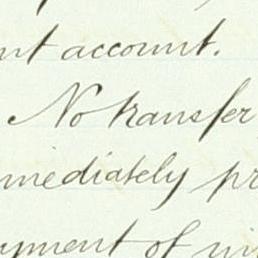 nt account.
No transfer
mmediately pr
yment of